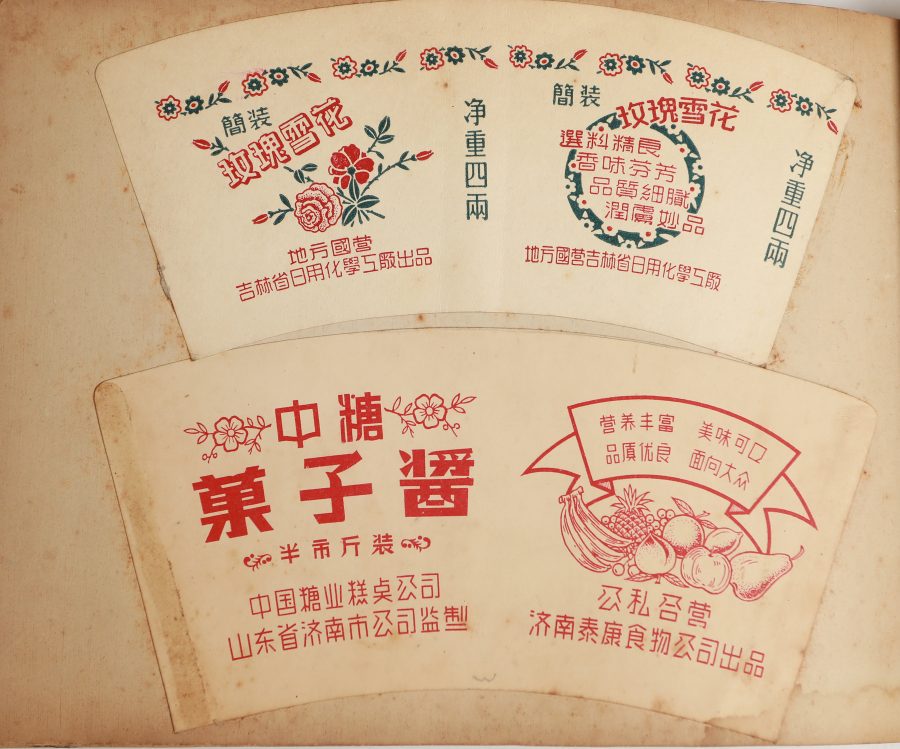 簡装
玫瑰雪花
地方國营
吉林省日用化學工廠出品
净重四兩
簡装
玫瑰雪花
選料精良
香味芬芳
品質細膩
潤膚妙品
地方國营吉林省日用化學工廠
净重四兩
中糖
菓子醬
半市斤装
中国糖业糕点公司
山东省济南市公司监製
营养丰富 美味可口
品质优良 面向大众
公私合营
济南泰康食物公司出品